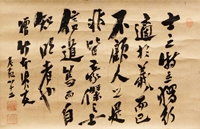 士之特立獨行
適於義而已
不顧人之是
非皆豪傑之士
信道篤而自
知明者也